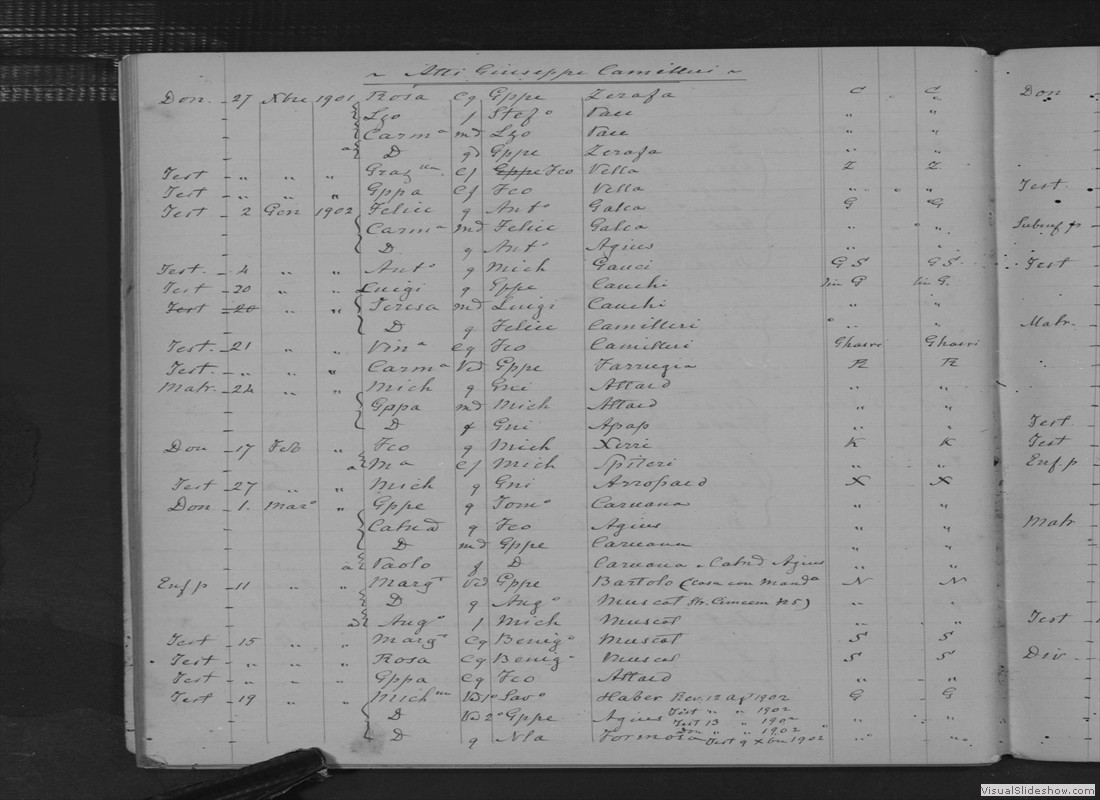 ~ Atti Giuseppe Camilleri ~
Don. 27 Xbre 1901 Rosa Cg Gppe Zerafa C C Don
Lzo f Stef° Vau " "
Carmª md Lzo Vau " "
a D g Gppe Zerafa " "
Test " " " Graz Cf Gppe Fco Vella Z Z
Test " " " Gppa Cf Fco Vella " " Test
Test 2 Gen 1902 Felice g Ant° Galea G G
Carmª md Felice Galea " " Subenf p
D g Ant° Agius " "
Test. 4 " " Ant° g Mich Gauci G S G S Test
Test 20 " " Luigi g Gppe Cauchi G G.
Test 20 " " Teresa md Luigi Cauchi " "
D g Felice Camilleri " " Matr.
Test. 21 " " Vinª Cg Fco Camilleri Ghasri Ghasri
Test. " " " Carmª Vd Gppe Farrugia
Matr. 24 " " Mich g Gni Attard " "
Gppa md Mich Attard " "
D g Gni Apap " " Test.
Don 17 Feb " Fco g Mich Xerri K K Test
a Mª Cf Mich Spiteri " " Enf. p
Test 27 " " Mich g Gni Arropard X X
Don 1. Mar° " Gppe g Tom° Caruana " "
g Fco Agius " " Matr
D md Gppe Caruana " "
a Paolo f D Caruana e Agius " "
Enf p 11 " " Margª Vd Gppe Bartolo (Casa con Mandª N N
D g Aug° Muscat Str. 25) " "
a Aug° f Mich Muscat " " Test
Test 15 " " Margª Cg Benig° Muscat S S
Test " " " Rosa Cg Benig° Muscat S S Div
Test " " " Gppa Cg Fco Attard " "
Test 19 " " Mich Vd 1° Sav° Haber Rev. 12 Ag 1902 G G
D Vd 2° Gppe Agius Test " " 1902 " "
Test 13 " " 1902
D g Nla Formosa Don " " 1902 " "
Test 9 Xbre 1902
VisualSlideshow.com